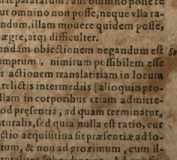 ut omnino non posse, neque vlla ra-
undum, illam mouere quidem posse,
ægre, atq; difficulter.
ondam obiectionem negandum est
mptum. nimirum possibilem esse
actionem translatitiam in locum
relictis intermediis (alioquin pro-
liam in corporibus etiam admitte-
od præsenti, ad quam terminatur,
naturalis, sed quia nulla est ratio, cur
ctio acquisitiua sit præsentiæ ad lo-
tum, & non ad proximum, cum il-